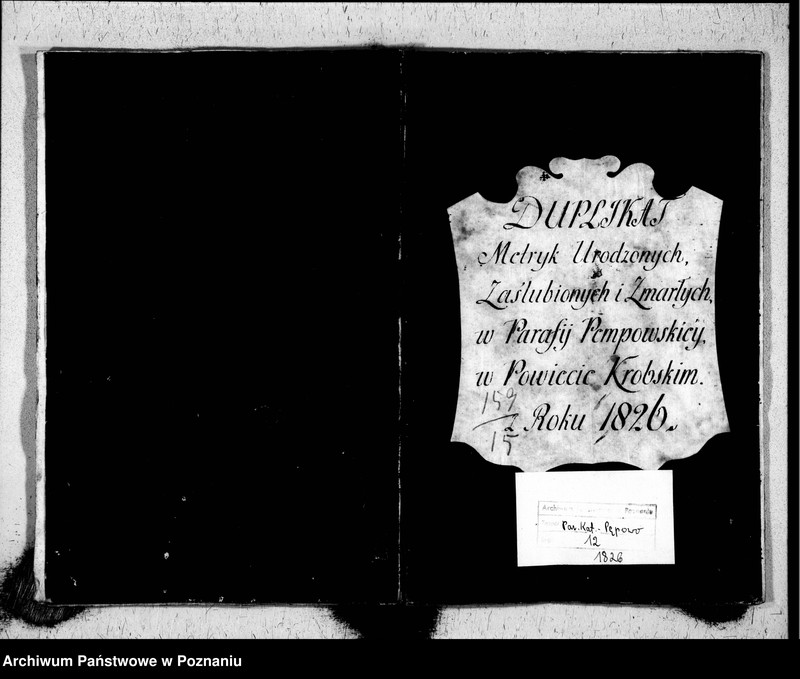 DUPLIKAT
Metryk Urodzonych,
Zaślubionych i Zmarłych,
w Parafij Pempowskiey,
w Powiecie Krobskim.
159
15
z Roku 1826.
Archiwum Poznaniu
Par. Kat. - Pępowo
12
1826
Archiwum Państwowe w Poznaniu